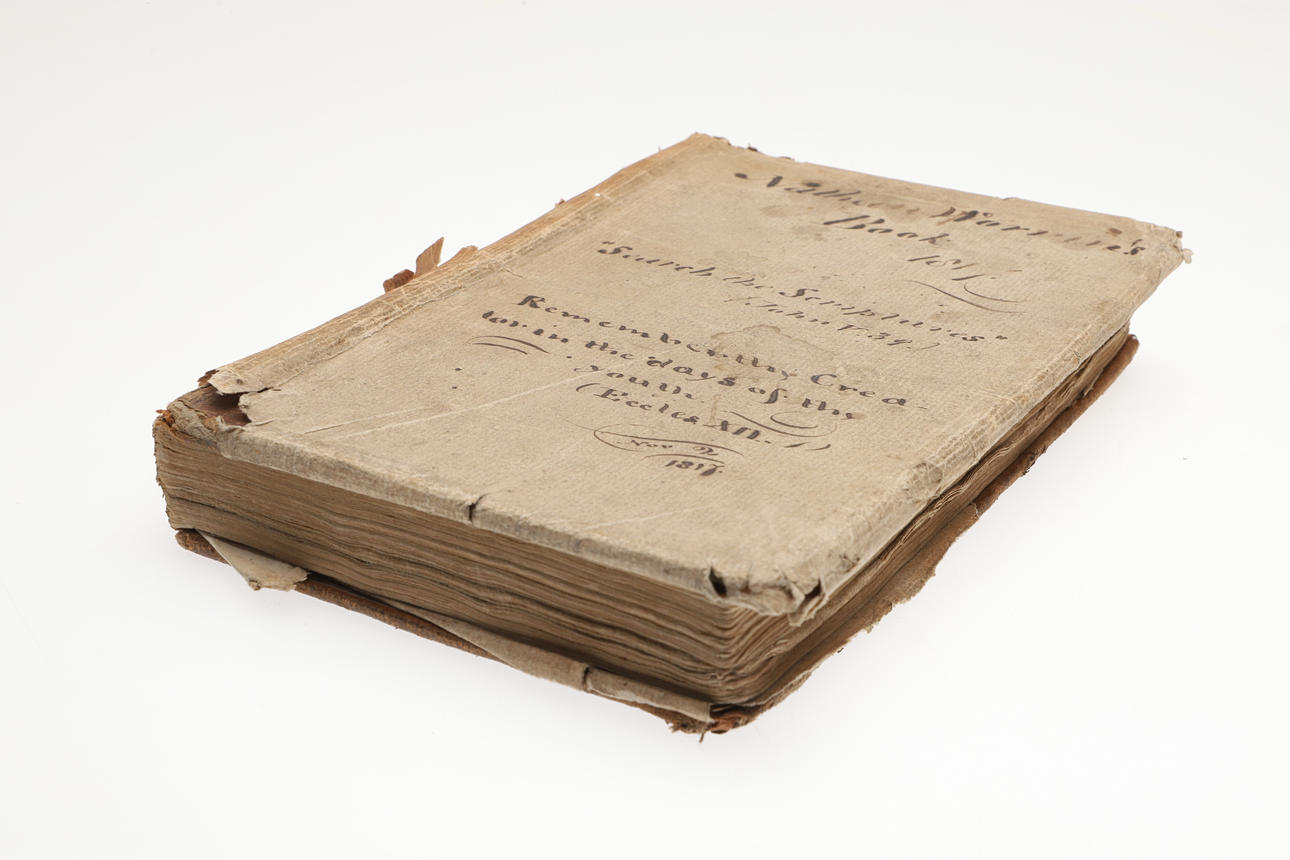 Nathan Worman's
Book
"Search the Scriptures"
(John V. 39.)
Remember thy Crea-
tor in the days of thy
youth.
(Eccles XII. 1)
Nov 2